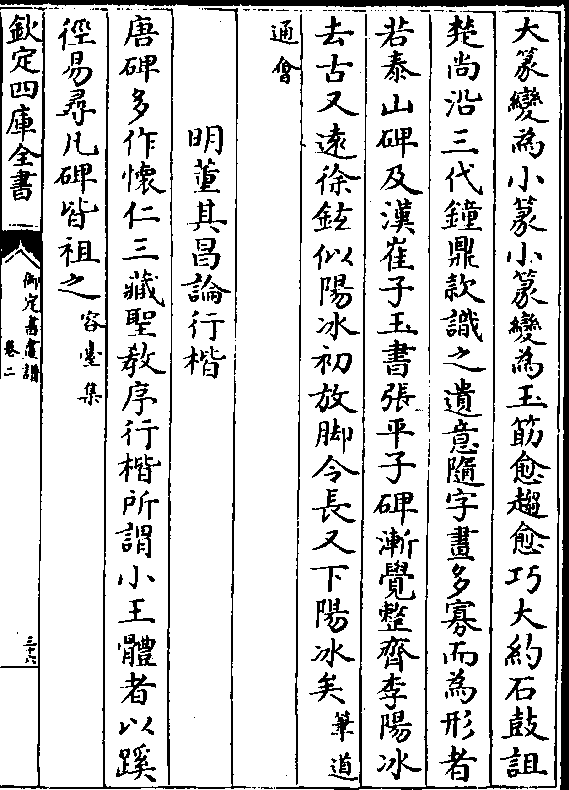 大篆變為小篆小篆變為玉筯愈趨愈巧大約石鼓詛
楚尚沿三代鐘鼎款識之遺意隨字畫多寡而為形者
若泰山碑及漢崔子玉書張平子碑漸覺整齊李陽冰
去古又遠徐鉉似陽冰初放脚令長又下陽冰矣筆道
通會
明董其昌論行楷
唐碑多作懷仁三藏聖教序行楷所謂小王體者以蹊
徑易尋凡碑皆祖之容臺集
欽定四庫全書
御定書畫譜
卷二
三十六